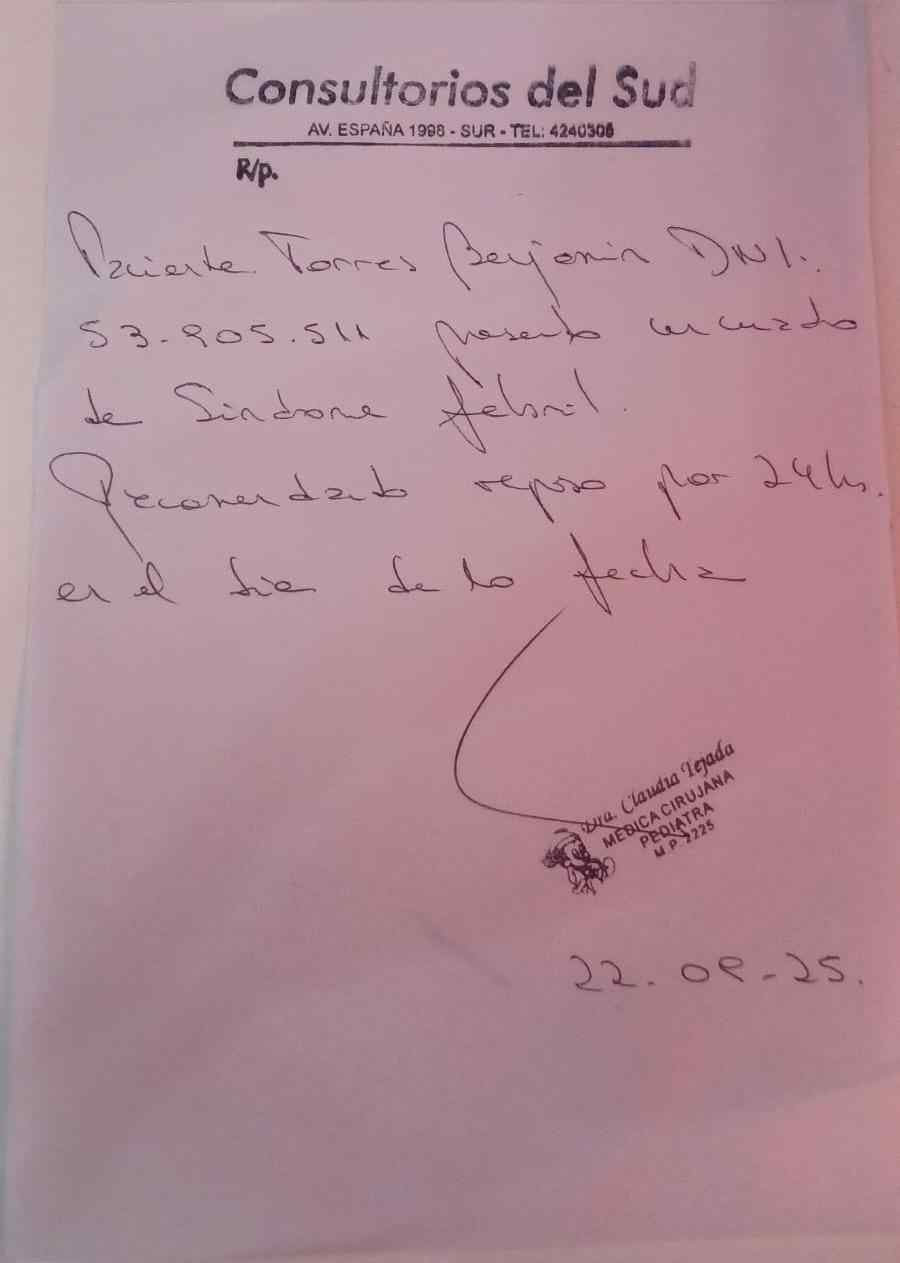 Consultorios del Sud
AV. ESPAÑA 1998 - SUR - TEL: 4240308
R/p.
Paciente Torres Benjamin DNI.
53.905.511 presenta un cuadro
de Sindrome febril.
Recomendando reposo por 24hs.
en el dia de la fecha
Dra. Claudia Tejada
MEDICA CIRUJANA
PEDIATRA
M P 2225
22.09-25.